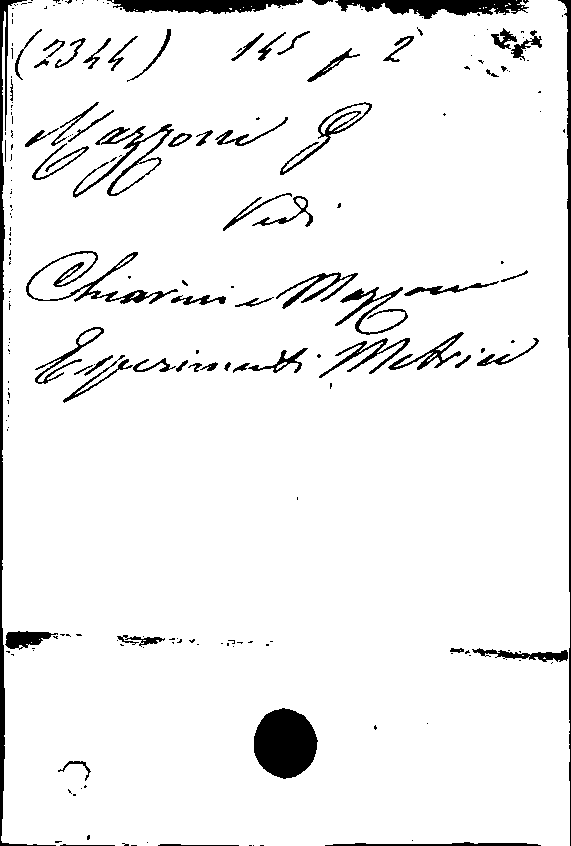 (2344) 145 f 2
Mazzoni G
Vedi
Chiarini e Mazzoni
Esperimenti Metrici